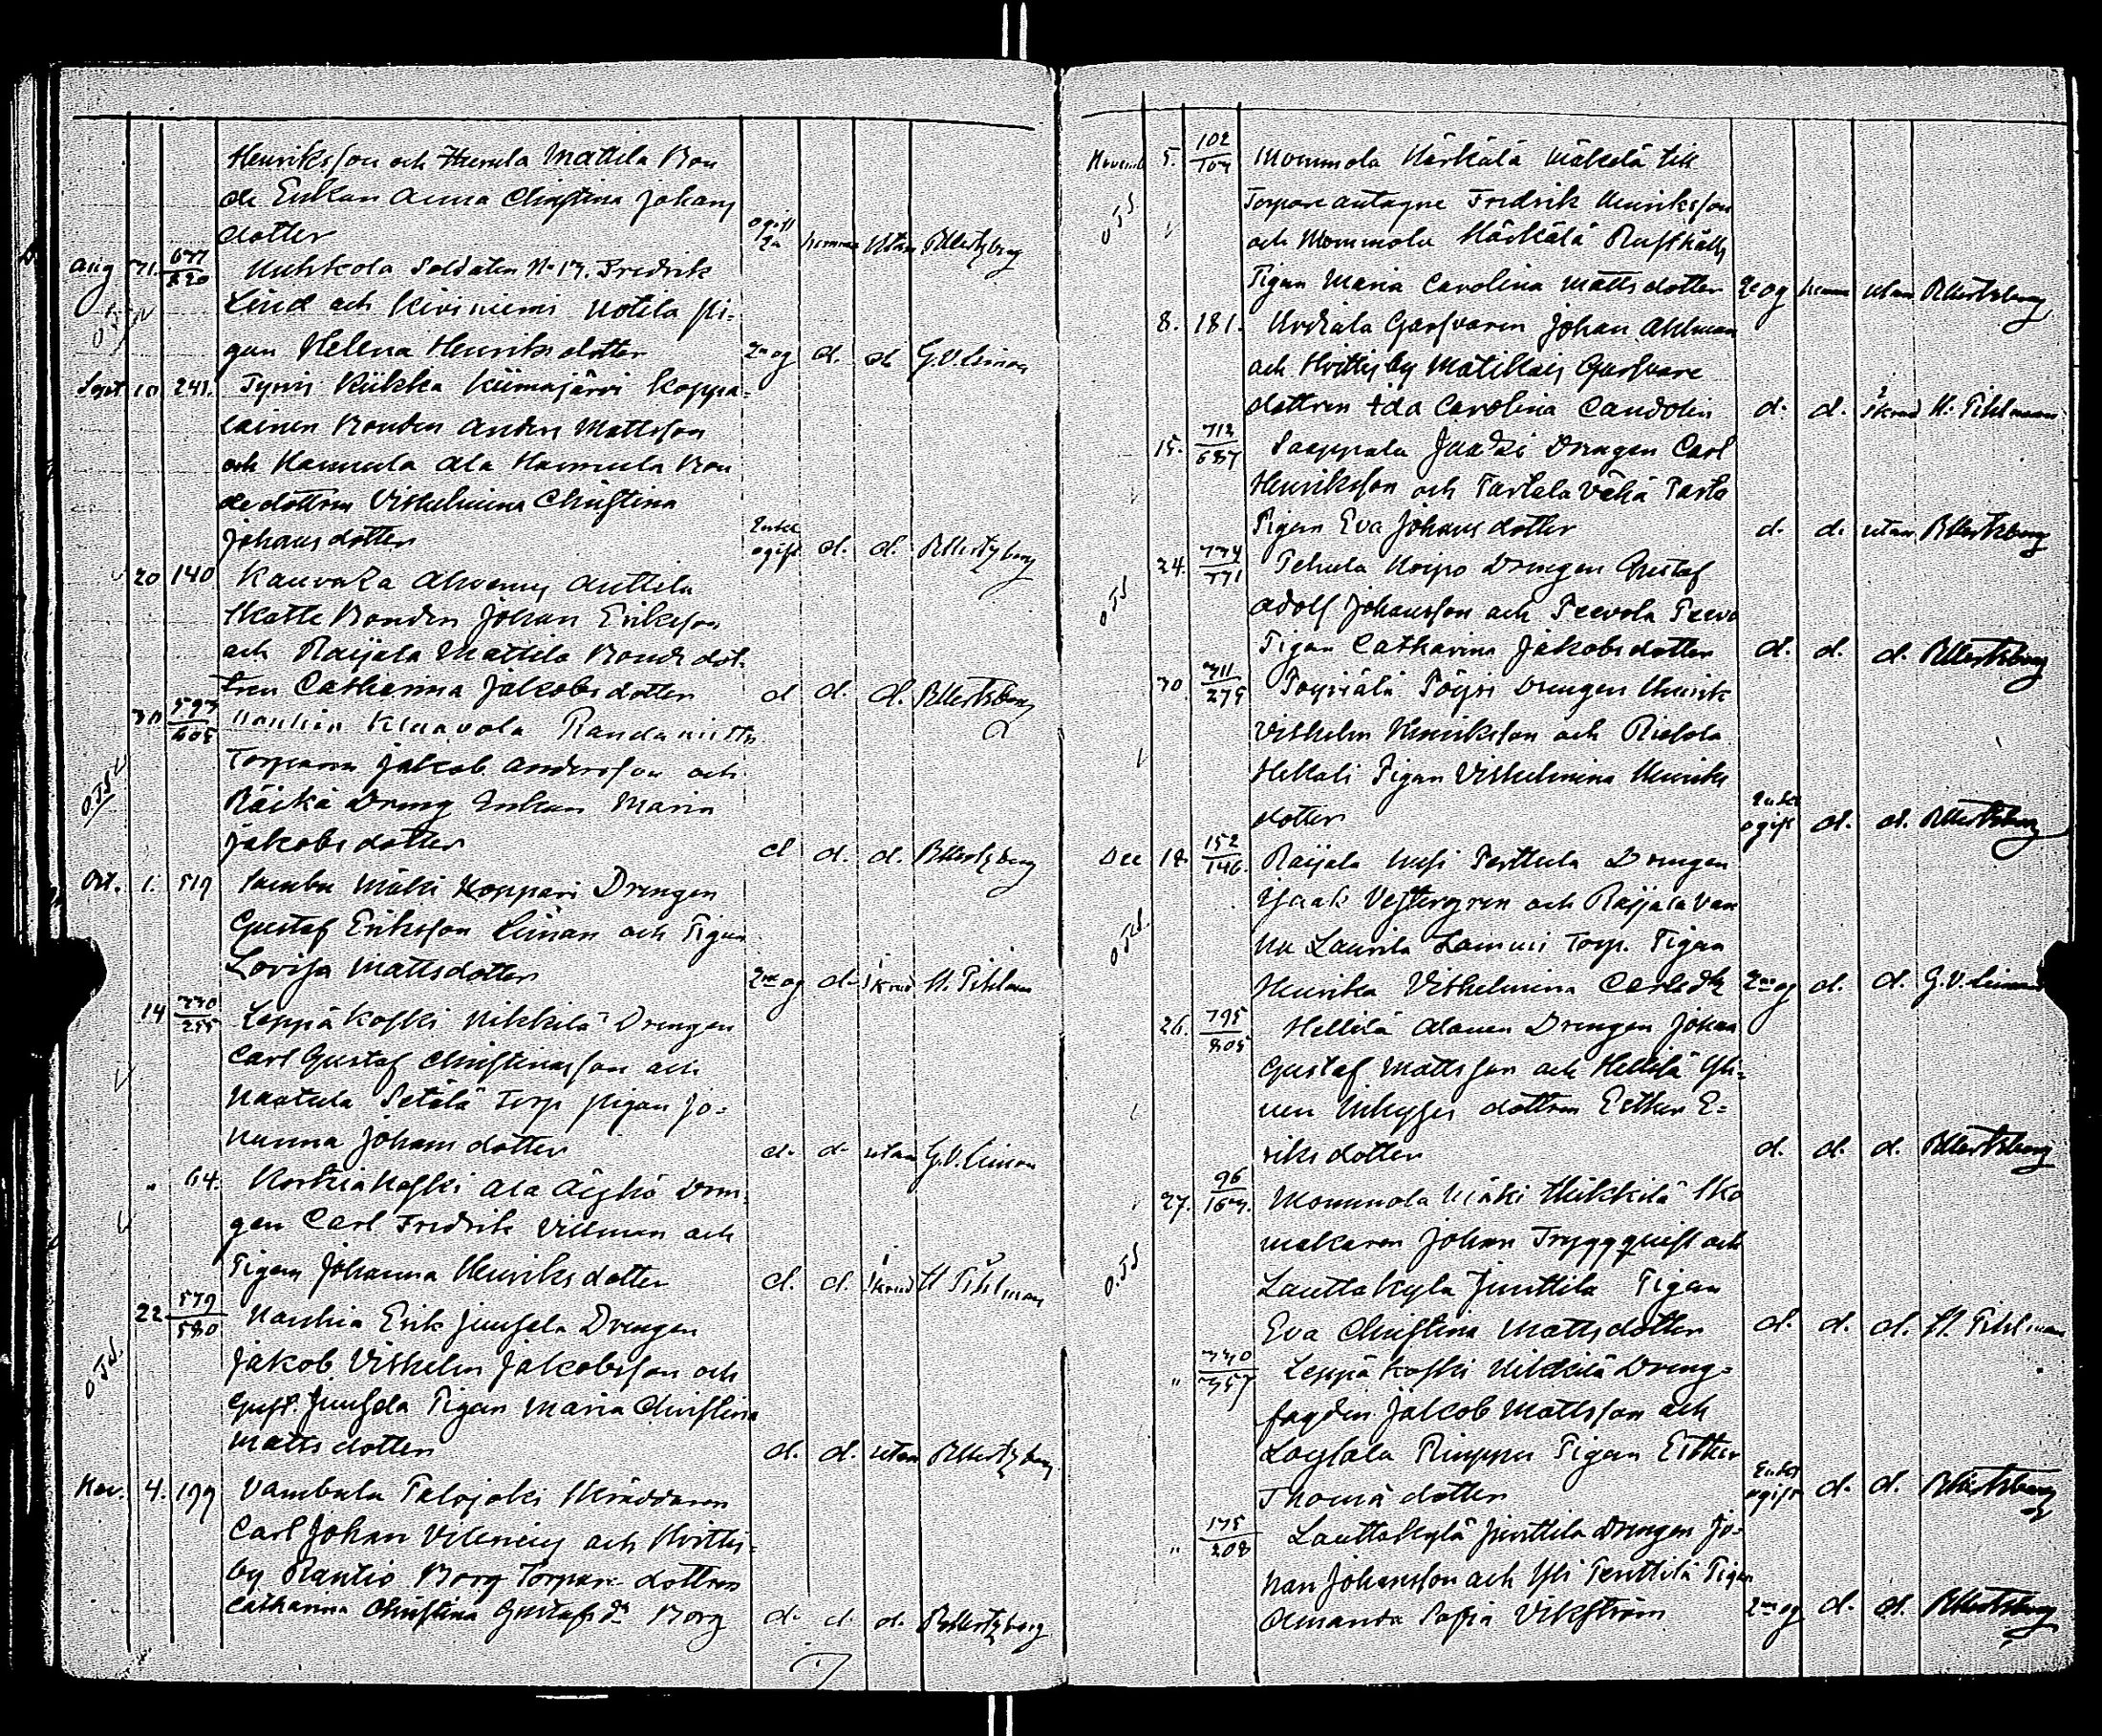 Henriksson och Mattila Bon
de Enkan Anna Christina Johans
dotter
ogift
2n hemma utan Bllertzberg
Aug 31. 677
820 Kuhkola Soldaten N. 17. Fredrik
Lind och Kiviniemi Notila pi-
gan Helena Henriksdotter 2ne og d. d. G.V. Leinon
Sept 10 241. Tyrvis Kiikka Kiimajärvi Koppa-
lainen Bonden Anders Mattsson
och Hannula Ala Hannula Bon
dedottren Vilhelmina Christina
Johansdotter Enkl
ogift d. d. Bllertzberg
20 140 Kauvatsa Ahvenus Anttila
Skatte Bonden Johan Eriksson
och Raijala Mattila Bondedot-
tren Catharina Jakobsdotter d d. d. Bllertzberg
30 593
605 Kauhia Knaavola
Torparen Jakob Andersson och
Räikä Dreng Enkan Maria
Jakobsdotter d d. d. Bllertzberg
Oct. 1. 519 Sambu Mäki Koppari Drengen
Gustaf Eriksson Leinan och Pigan
Lovisa Mattsdotter 2ne og d. H. Pihlman
14 330
255 Leppäkoski Nikkilä Drengen
Carl Gustaf Christiansson och
Naatula Setälä Torp pigan Jo-
hanna Johansdotter d. d. utan G.V. Leinon
" 64. Korkiakoski Ala Äijhö Dren-
gen Carl Fredrik Villman och
Pigan Johanna Henriksdotter d. d. H Pihlman
22 579
580 Kauhia Erik Junsela Drengen
Jakob Vilhelm Jakobsson och
Gust. Junsela Pigan Maria Christina
Mattsdotter d. d. utan Bllertzberg
Nov. 4. 199 Vambula Palojoki Skräddaren
Carl Johan Vilenius och Hvittis-
by Rantio Borg Torpare dottren
Catharina Christina Gustafsdr Borg d. d. d. Bllertzberg
Novemb 5. 102
104 Mommola Härkälä Mäkelä till
Torpare antagne Fredrik Henriksson
och Mommola Härkälä Rusthålls
Pigan Maria Carolina Mattsdotter 2e og hemma utan Bllertzberg
8. 181. Kvdiala Garfvaren Johan Ahlman
och Hvittisby Matikais Garfvare
dottren Ida Carolina Candolin d. d. H. Pihlman
15. 712
687 Sasppala Jaakoi Drengen Carl
Henriksson och Tartela Vähä Tarts
Pigan Eva Johansdotter d. d. utan Bllertzberg
24. 774
771 Pehula Koipo Drengen Gustaf
Adolf Johansson och Peevola Peevo
Pigan Catharina Jakobsdotter d. d. d. Bllertzberg
30 311
275 Pöyriälä Pöyri Drengen Henrik
Vilhelm Henriksson och Riesola
Hellali Pigan Vilhelmina Henriks
dotter Enkel
ogift d. d. Bllertzberg
Dec 18. 152
146. Raijala Uusi Perttula Drengen
Isaak Vestergren och Raijala Van
ha Laurila Lammi Torp. Pigan
Henrika Vilhelmina Carlsdtr 2ne og d. d. G.V. Leinon
26. 795
805 Hellilä Alanen Drengen Johan
Gustaf Mattsson och Hellilä Yli-
nen Inhyses dottren Esther E-
riksdotter d. d. d. Bllertzberg
27. 96
Mommola Mäki Mikkilä Sko
makaren Johan Tryggqvist och
Lauttakylä Junttila Pigan
Eva Christina Mattsdotter d. d. d. H. Pihlman
" 330
357 Leppäkoski Nikkilä Dreng-
fogden Jakob Mattsson och
Loysala Pigan Esther
Thomädotter Enkel
ogift d. d. Bllertzberg
" 175
208 Lauttakylä Junttila Drengen Jo-
han Johansson och Yli Penttilä Pigan
Amanda Sofia Vikström 2ne og d. d. Bllertzberg